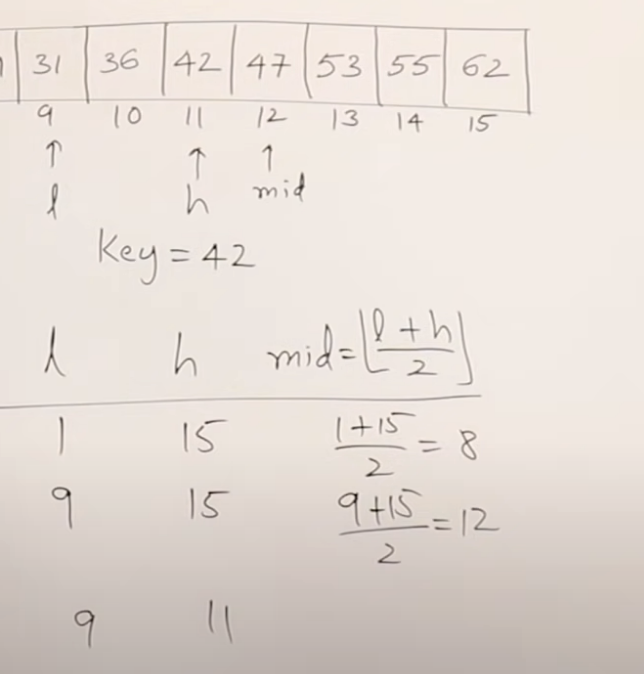 31 36 42 47 53 55 62
9 10 11 12 13 14 15
↑ ↑ ↑
l h mid
Key = 42
l h mid = ⌊(l + h)/2⌋
1 15 (1+15)/2 = 8
9 15 (9+15)/2 = 12
9 11